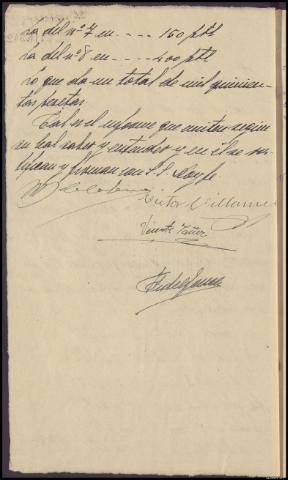 ra del nº 7 en - - - - 150 ptts
ra del nº 8 en - - - - 400 ptts
ro que da un total de mil quinien-
tas pesetas.
Tal es el informe que emiten según
su leal saber y entender y en él se ra-
tifican y firman con S.S. Doy fe.
Victor Villanue
Vicente Yañez